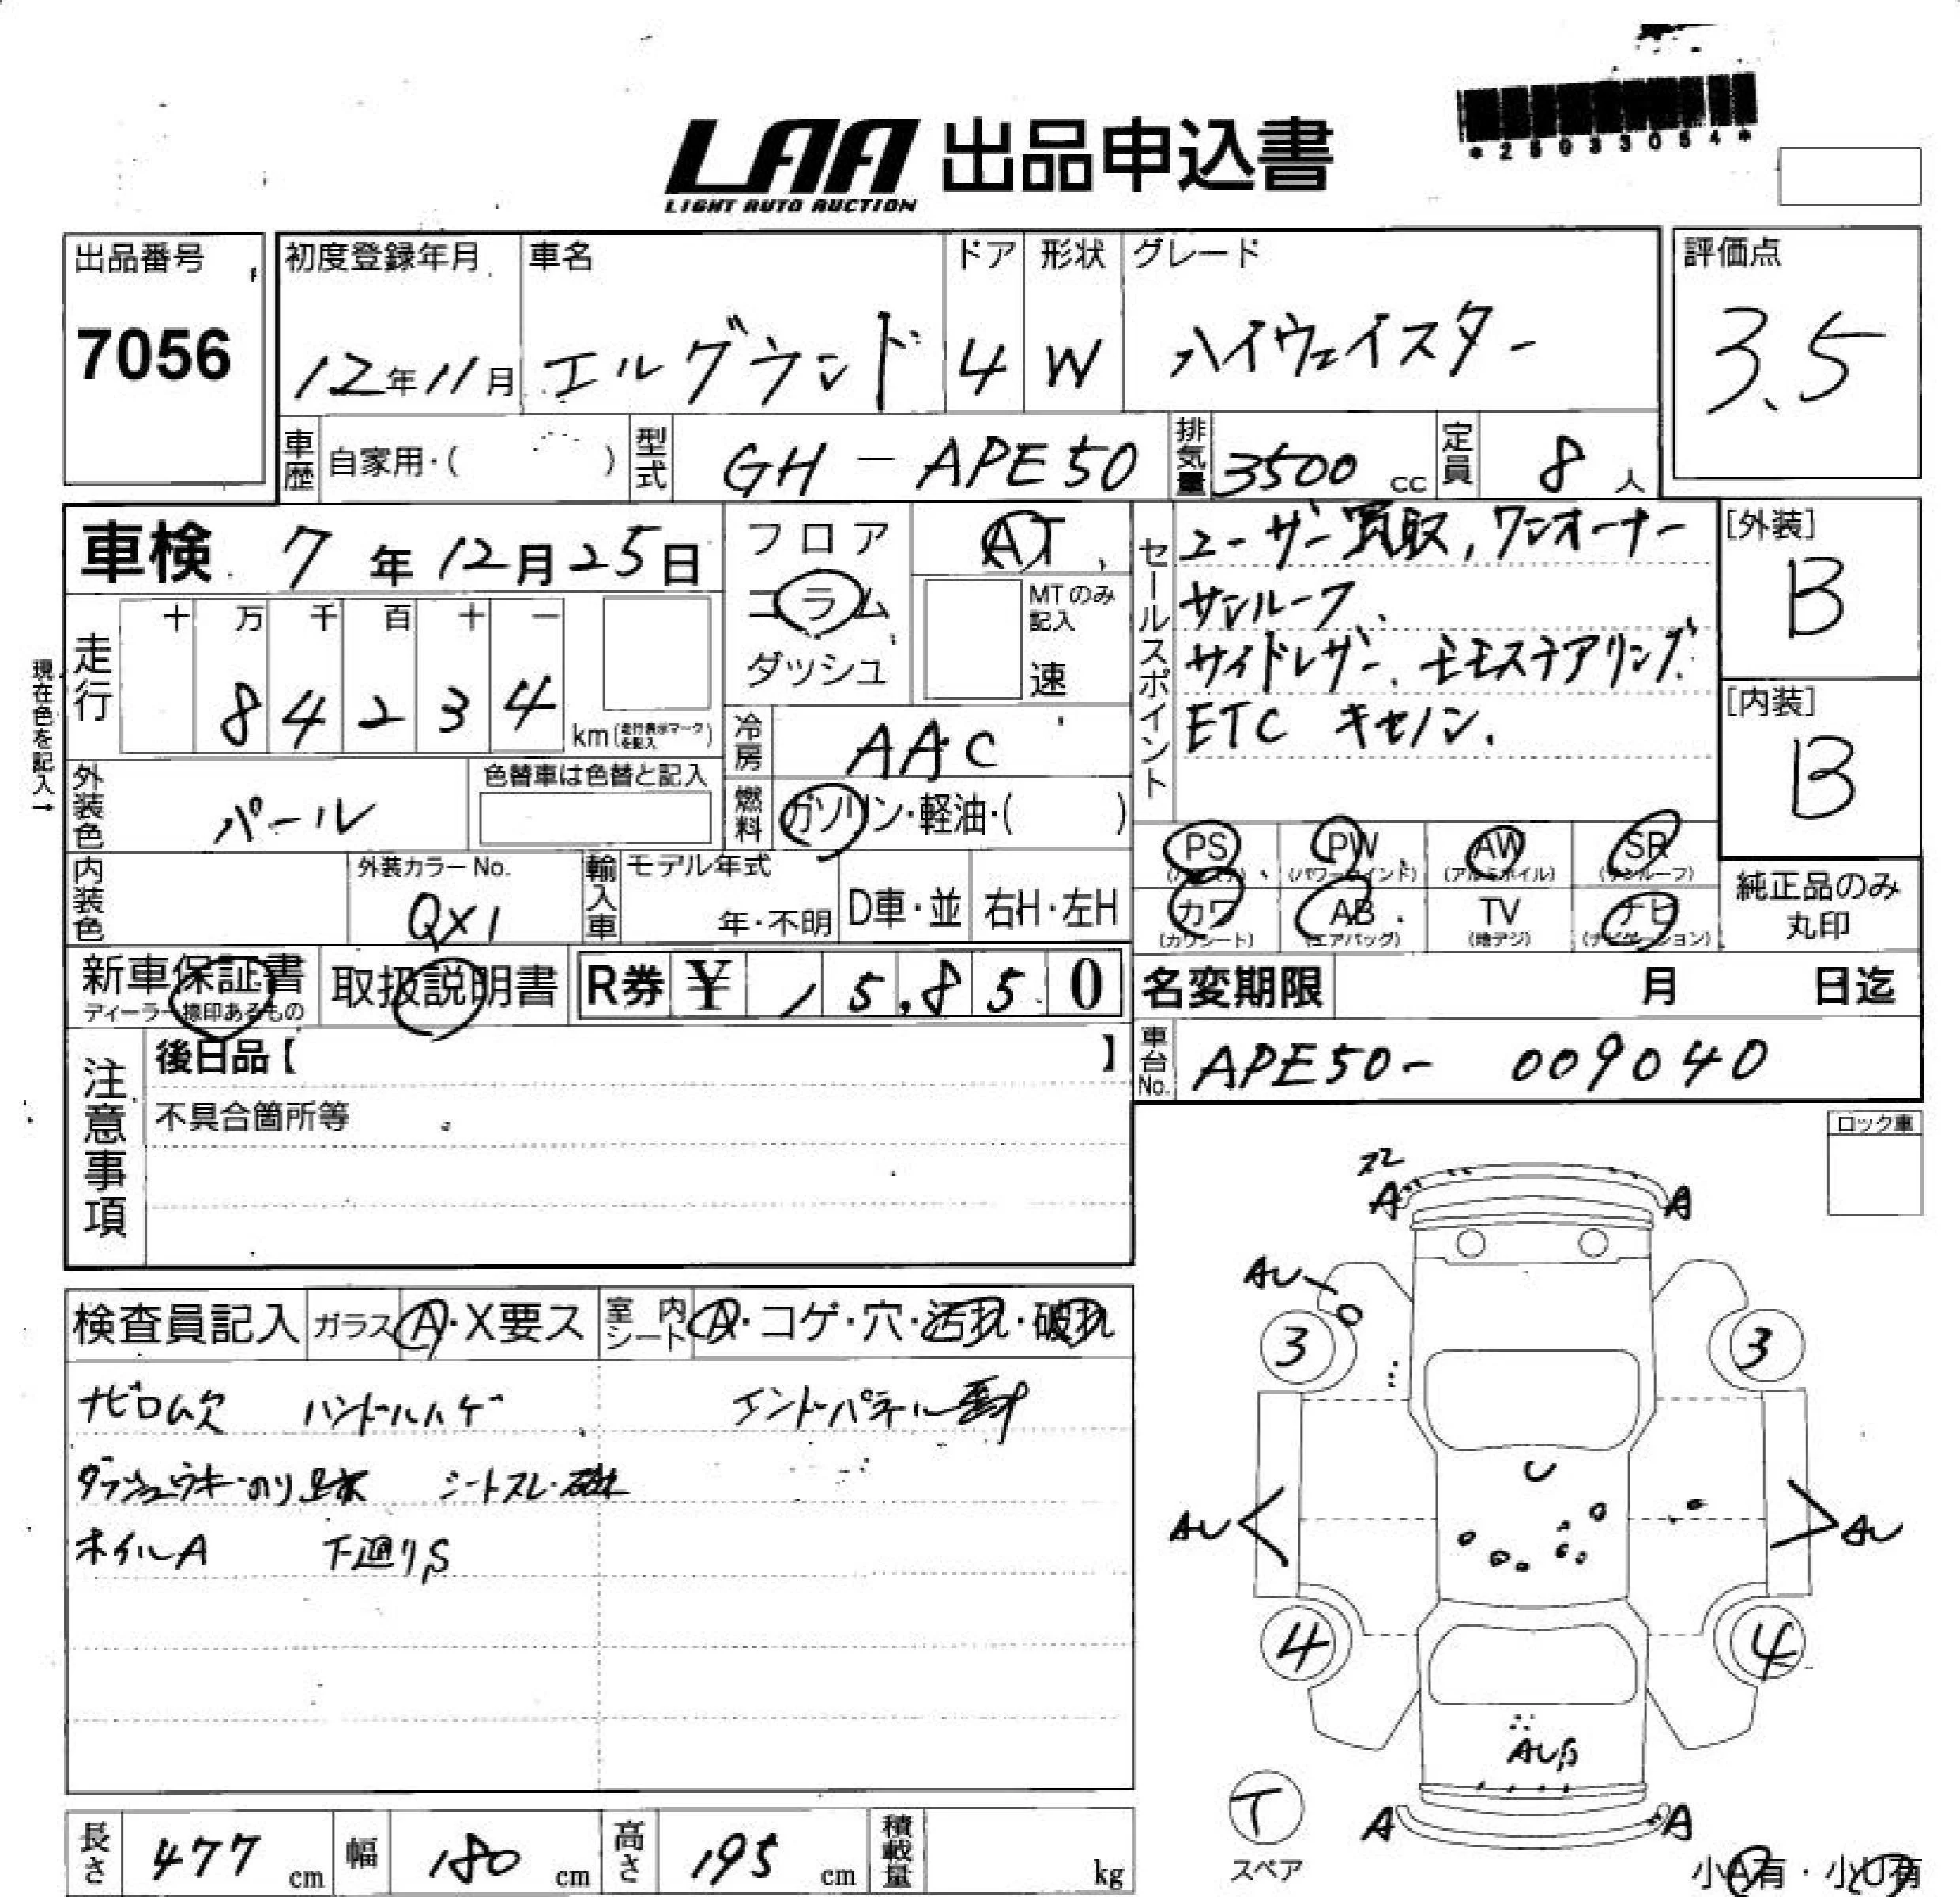 LAA 出品申込書
LIGHT AUTO AUCTION
出品番号
7056
初度登録年月
12年11月
車名
エルグランド
ドア
4
形状
W
グレード
ハイウェイスター
評価点
3.5
車歴
自家用・( )
型式
GH-APE50
排気量
3500 cc
定員
8人
車検 7年12月25日
走行
十 万 千 百 十 一
8 4 2 3 4
km(走行表示マークを記入)
現在色を記入→
外装色
パール
色替車は色替と記入
内装色
外装カラーNo.
QX1
フロア
コラム
ダッシュ
AT
MTのみ記入
速
冷房
AAC
燃料
ガソリン・軽油・( )
輸入車
モデル年式
年・不明
D車・並
右H・左H
セールスポイント
ユーザー買取, ワンオーナー
サンルーフ.
サイドレザー. モモステアリング.
ETC キセノン.
[外装]
B
[内装]
B
PS PW AW SR
(パワーウインド) (アルミホイル) (サンルーフ)
カワ AB TV ナビ
(カワシート) (エアバッグ) (地デジ) (ナビゲーション)
純正品のみ
丸印
新車保証書
ディーラー捺印あるもの
取扱説明書
R券 ¥ 15,850
名変期限 月 日迄
車台No.
APE50-009040
注意事項
後日品【 】
不具合箇所等
ロック車
検査員記入
ガラス A・X要ス
室内シート A・コゲ・穴・汚れ・破れ
ナビロム欠 ハンドルハゲ エンドパネル
シートスレ・破れ
ホイルA 下廻りS
A A
AU
3 3
U
AU AU
4 4
A A
T
スペア
小A有・小U有
長さ
477 cm
幅
180 cm
高さ
195 cm
積載量
kg